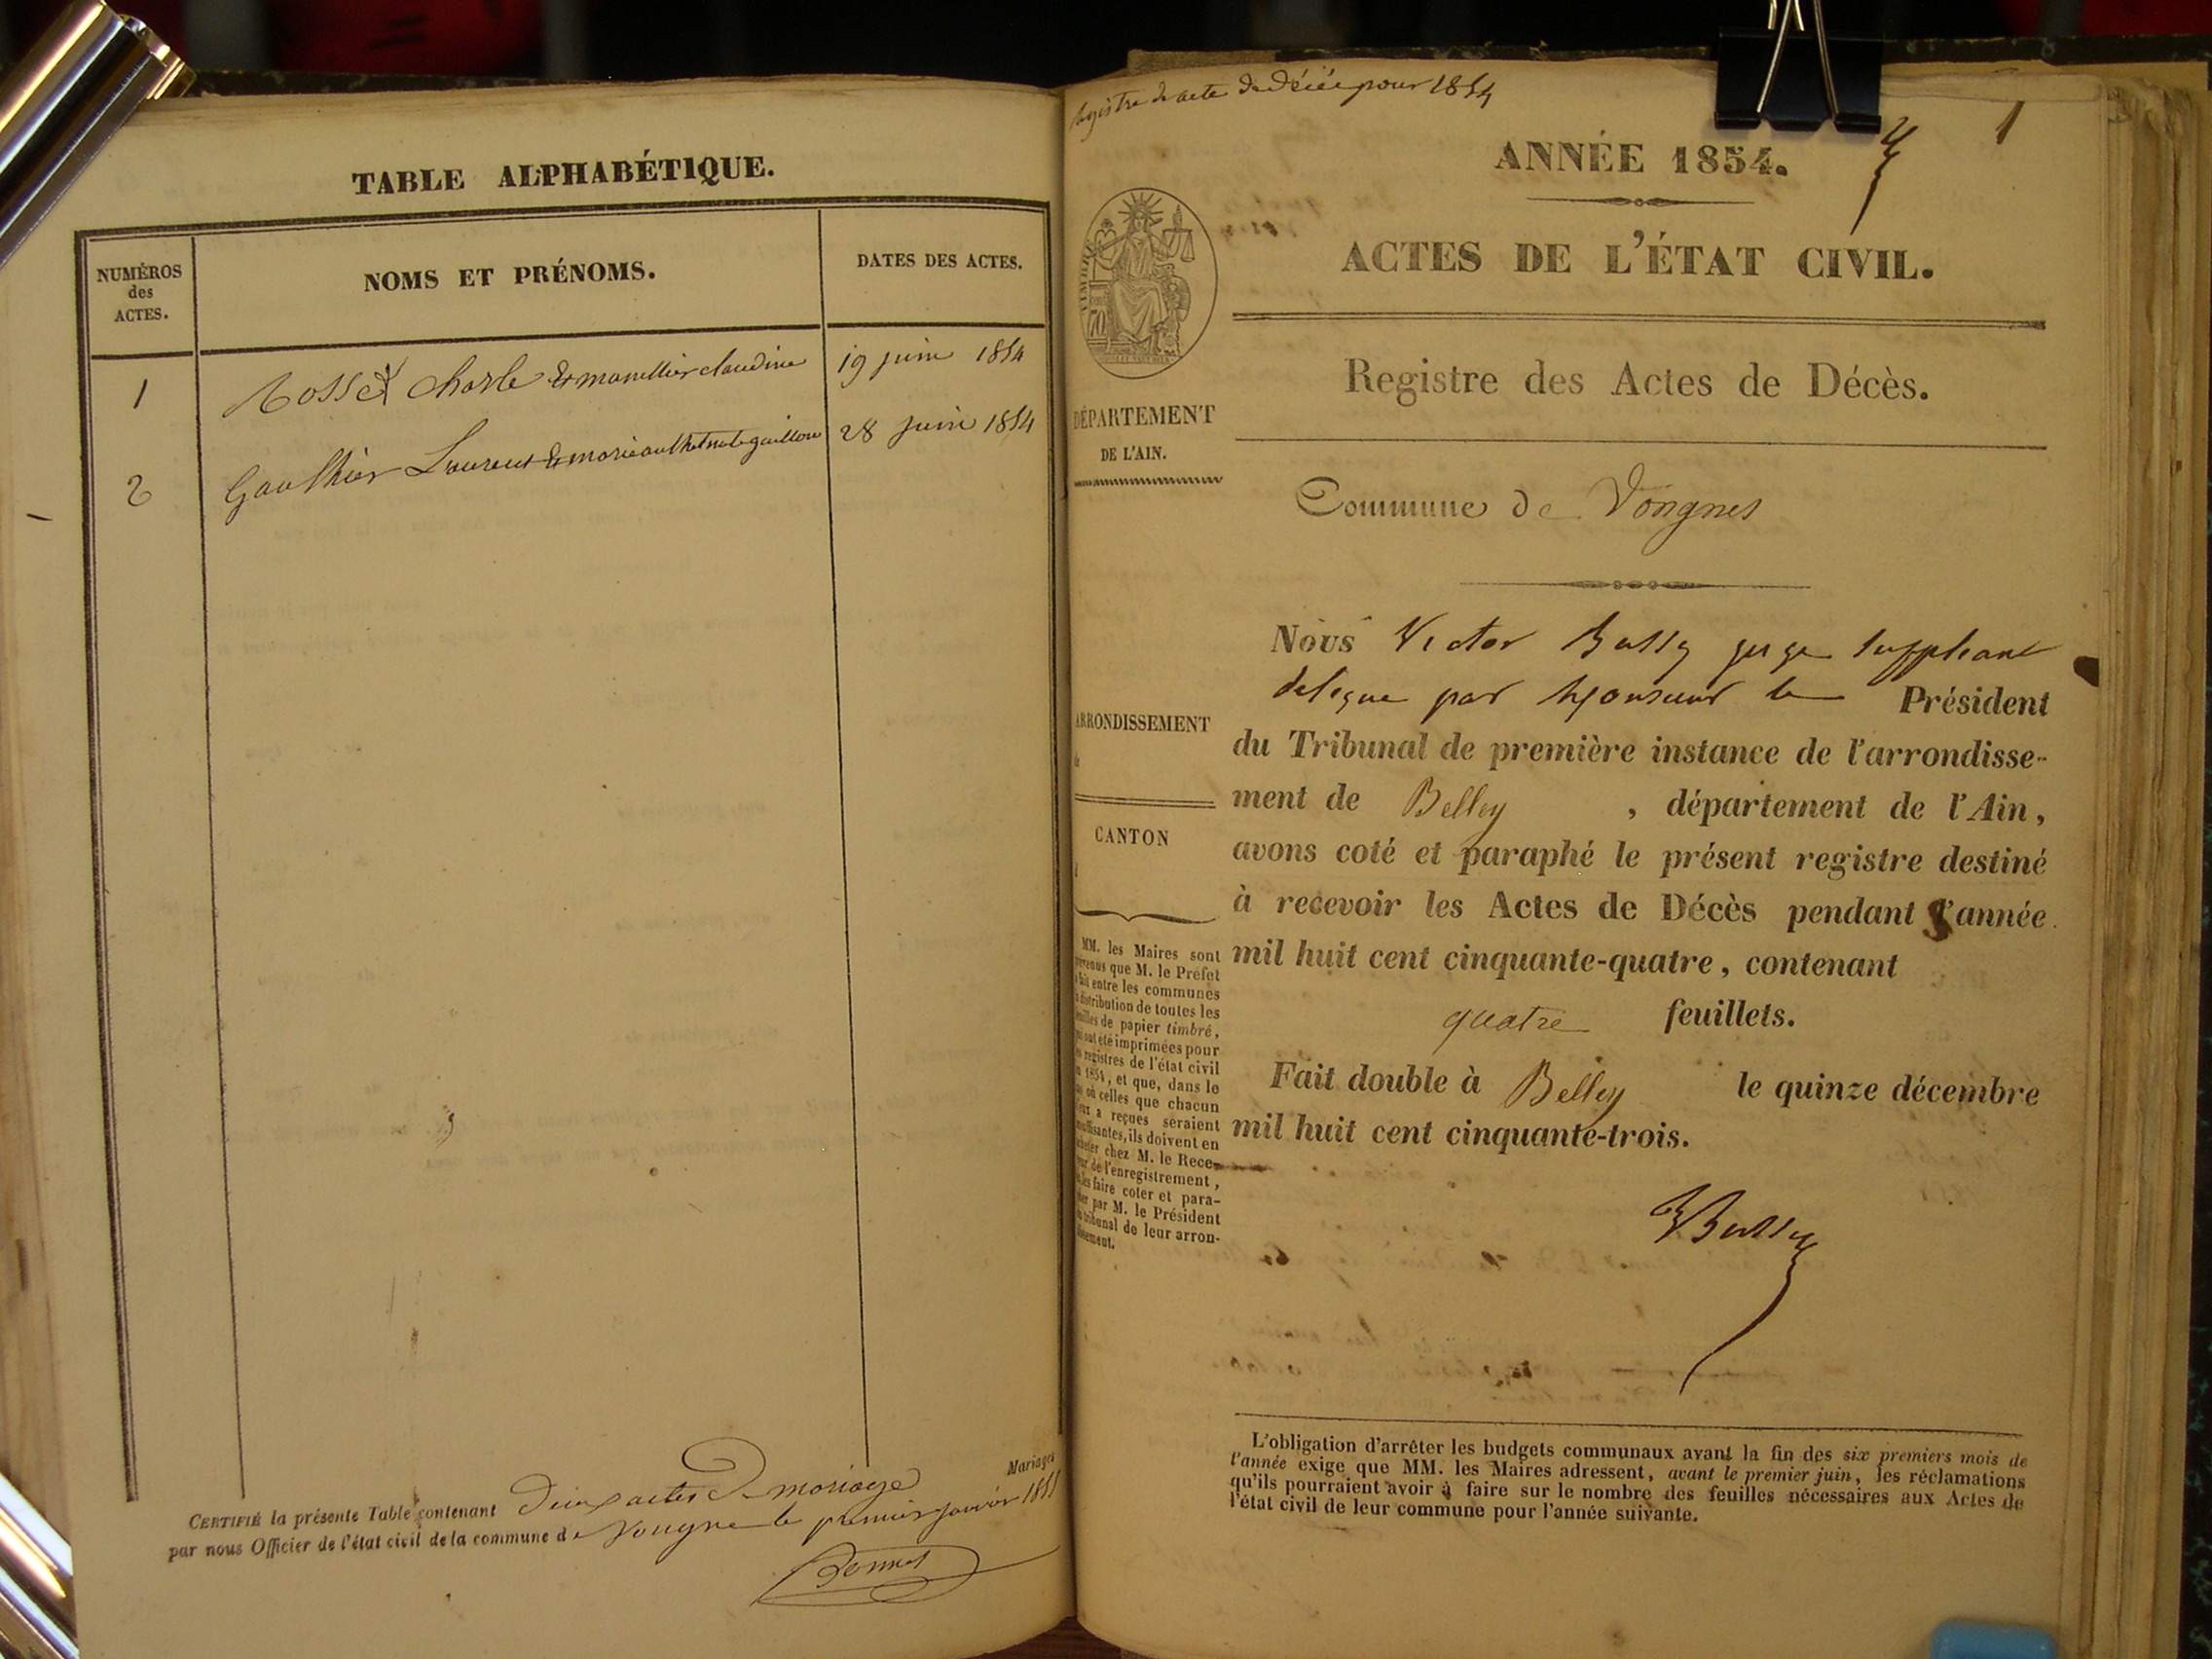 TABLE ALPHABÉTIQUE.
NUMÉROS
des
ACTES.
NOMS ET PRÉNOMS.
DATES DES ACTES.
1 Rosset Charle & claudine 19 juin 1854
2 Gauthier Laurent & marie 28 Juin 1854
Mariages
CERTIFIÉ la présente Table contenant Deux actes De mariage
par nous Officier de l'état civil de la commune de Vongne le premier janvier 1855
Bonnet
Registre de acte de décée pour 1854
1
ANNÉE 1854.
ACTES DE L'ÉTAT CIVIL.
TIMBRE
70
DÉPARTEMENT
DE L'AIN.
Registre des Actes de Décès.
Commune de Vongnes
Nous Victor Bussy juge suppleant
delegue par Monsieur le Président
du Tribunal de première instance de l'arrondisse-
ment de Belley , département de l'Ain,
avons coté et paraphé le présent registre destiné
à recevoir les Actes de Décès pendant l'année
mil huit cent cinquante-quatre, contenant
quatre feuillets.
Fait double à Belley le quinze décembre
mil huit cent cinquante-trois.
VBussy
ARRONDISSEMENT
CANTON
MM. les Maires sont
prévenus que M. le Préfet
a fait entre les communes
la distribution de toutes les
feuilles de papier timbré,
qui ont été imprimées pour
les registres de l'état civil
en 1854, et que, dans le
cas où celles que chacun
d'eux a reçues seraient
insuffisantes, ils doivent en
acheter chez M. le Rece-
veur de l'enregistrement,
et les faire coter et para-
pher par M. le Président
du tribunal de leur arron-
dissement.
L'obligation d'arrêter les budgets communaux avant la fin des six premiers mois de
l'année exige que MM. les Maires adressent, avant le premier juin, les réclamations
qu'ils pourraient avoir à faire sur le nombre des feuilles nécessaires aux Actes de
l'état civil de leur commune pour l'année suivante.